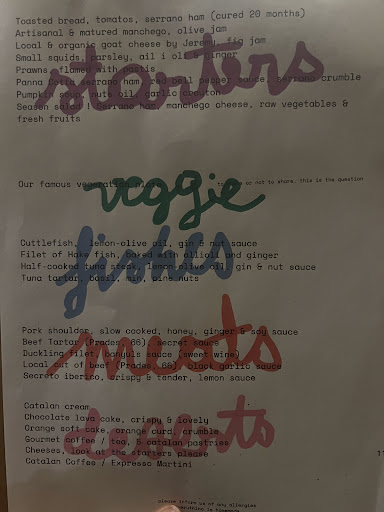 starters
Toasted bread, tomatos, serrano ham (cured 20 months)
Artisanal & matured manchego, olive jam
Local & organic goat cheese by Jeremy, fig jam
Small squids, parsley, ail i oli & ginger
Prawns, flamed with pastis
Panna Cotta serrano ham, red bell pepper sauce, serrano crumble
Pumpkin soup, nuts oil, garlic crouton
Season salad | Serrano ham, manchego cheese, raw vegetables &
fresh fruits
veggie
Our famous vegetarian plate to share or not to share, this is the question
fishes
Cuttlefish, lemon-olive oil, gin & nut sauce
Filet of Hake fish, baked with allioli and ginger
Half-cooked tuna steak, lemon-olive oil, gin & nut sauce
Tuna tartar, basil, mint, pine nuts
meats
Pork shoulder, slow cooked, honey, ginger & soy sauce
Beef Tartar (Prades, 66), secret sauce
Duckling filet, banyuls sauce (sweet wine)
Local cut of beef (Prades, 66), black garlic sauce
Secreto iberico, crispy & tender, lemon sauce
desserts
Catalan cream
Chocolate lava cake, crispy & lovely
Orange soft cake, orange curd, crumble
Gourmet coffee / tea, 3 catalan pastries
Cheeses, look at the starters please
Catalan Coffee / Expresso Martini
please inform us of any allergies
everything is homemade